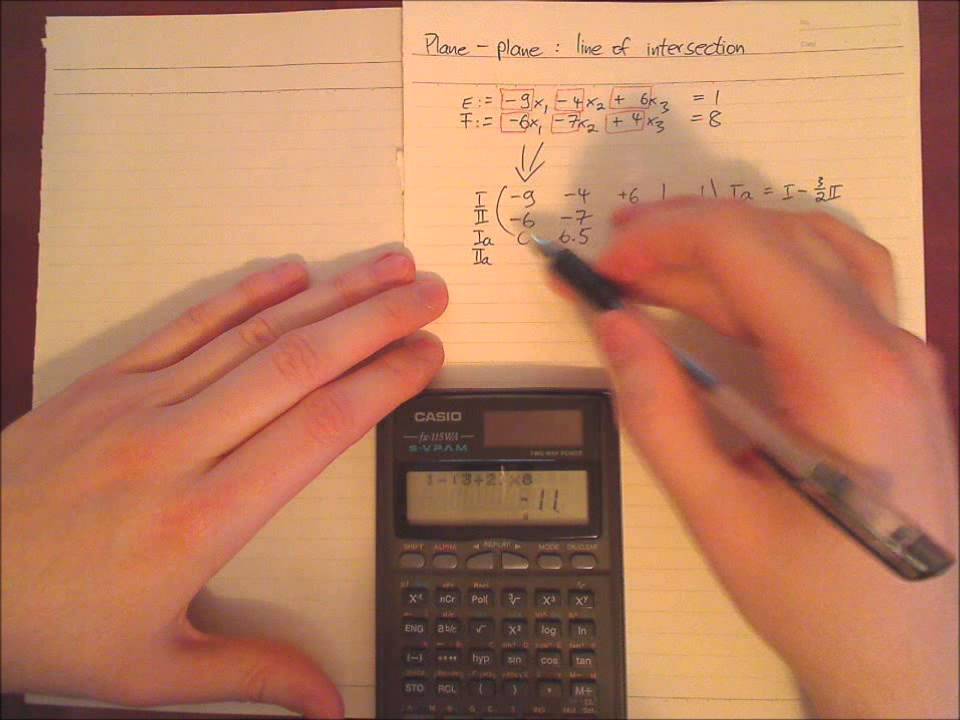 Plane - plane : line of intersection
E := -9x₁ -4x₂ + 6x₃ = 1
F := -6x₁ -7x₂ + 4x₃ = 8
I ( -9 -4 +6 | 1 ) Ia = I - 3/2 II
II -6 -7
Ia 0 6.5
IIa
CASIO
fx-115WA
S-V.P.A.M.
TWO WAY POWER
1-(3÷2)×8
-11.
SHIFT ALPHA REPLAY MODE ON/CLEAR
nCr Pol(
ENG a b/c √ X² log ln
(-) hyp sin cos tan
STO RCL ( ) , M+